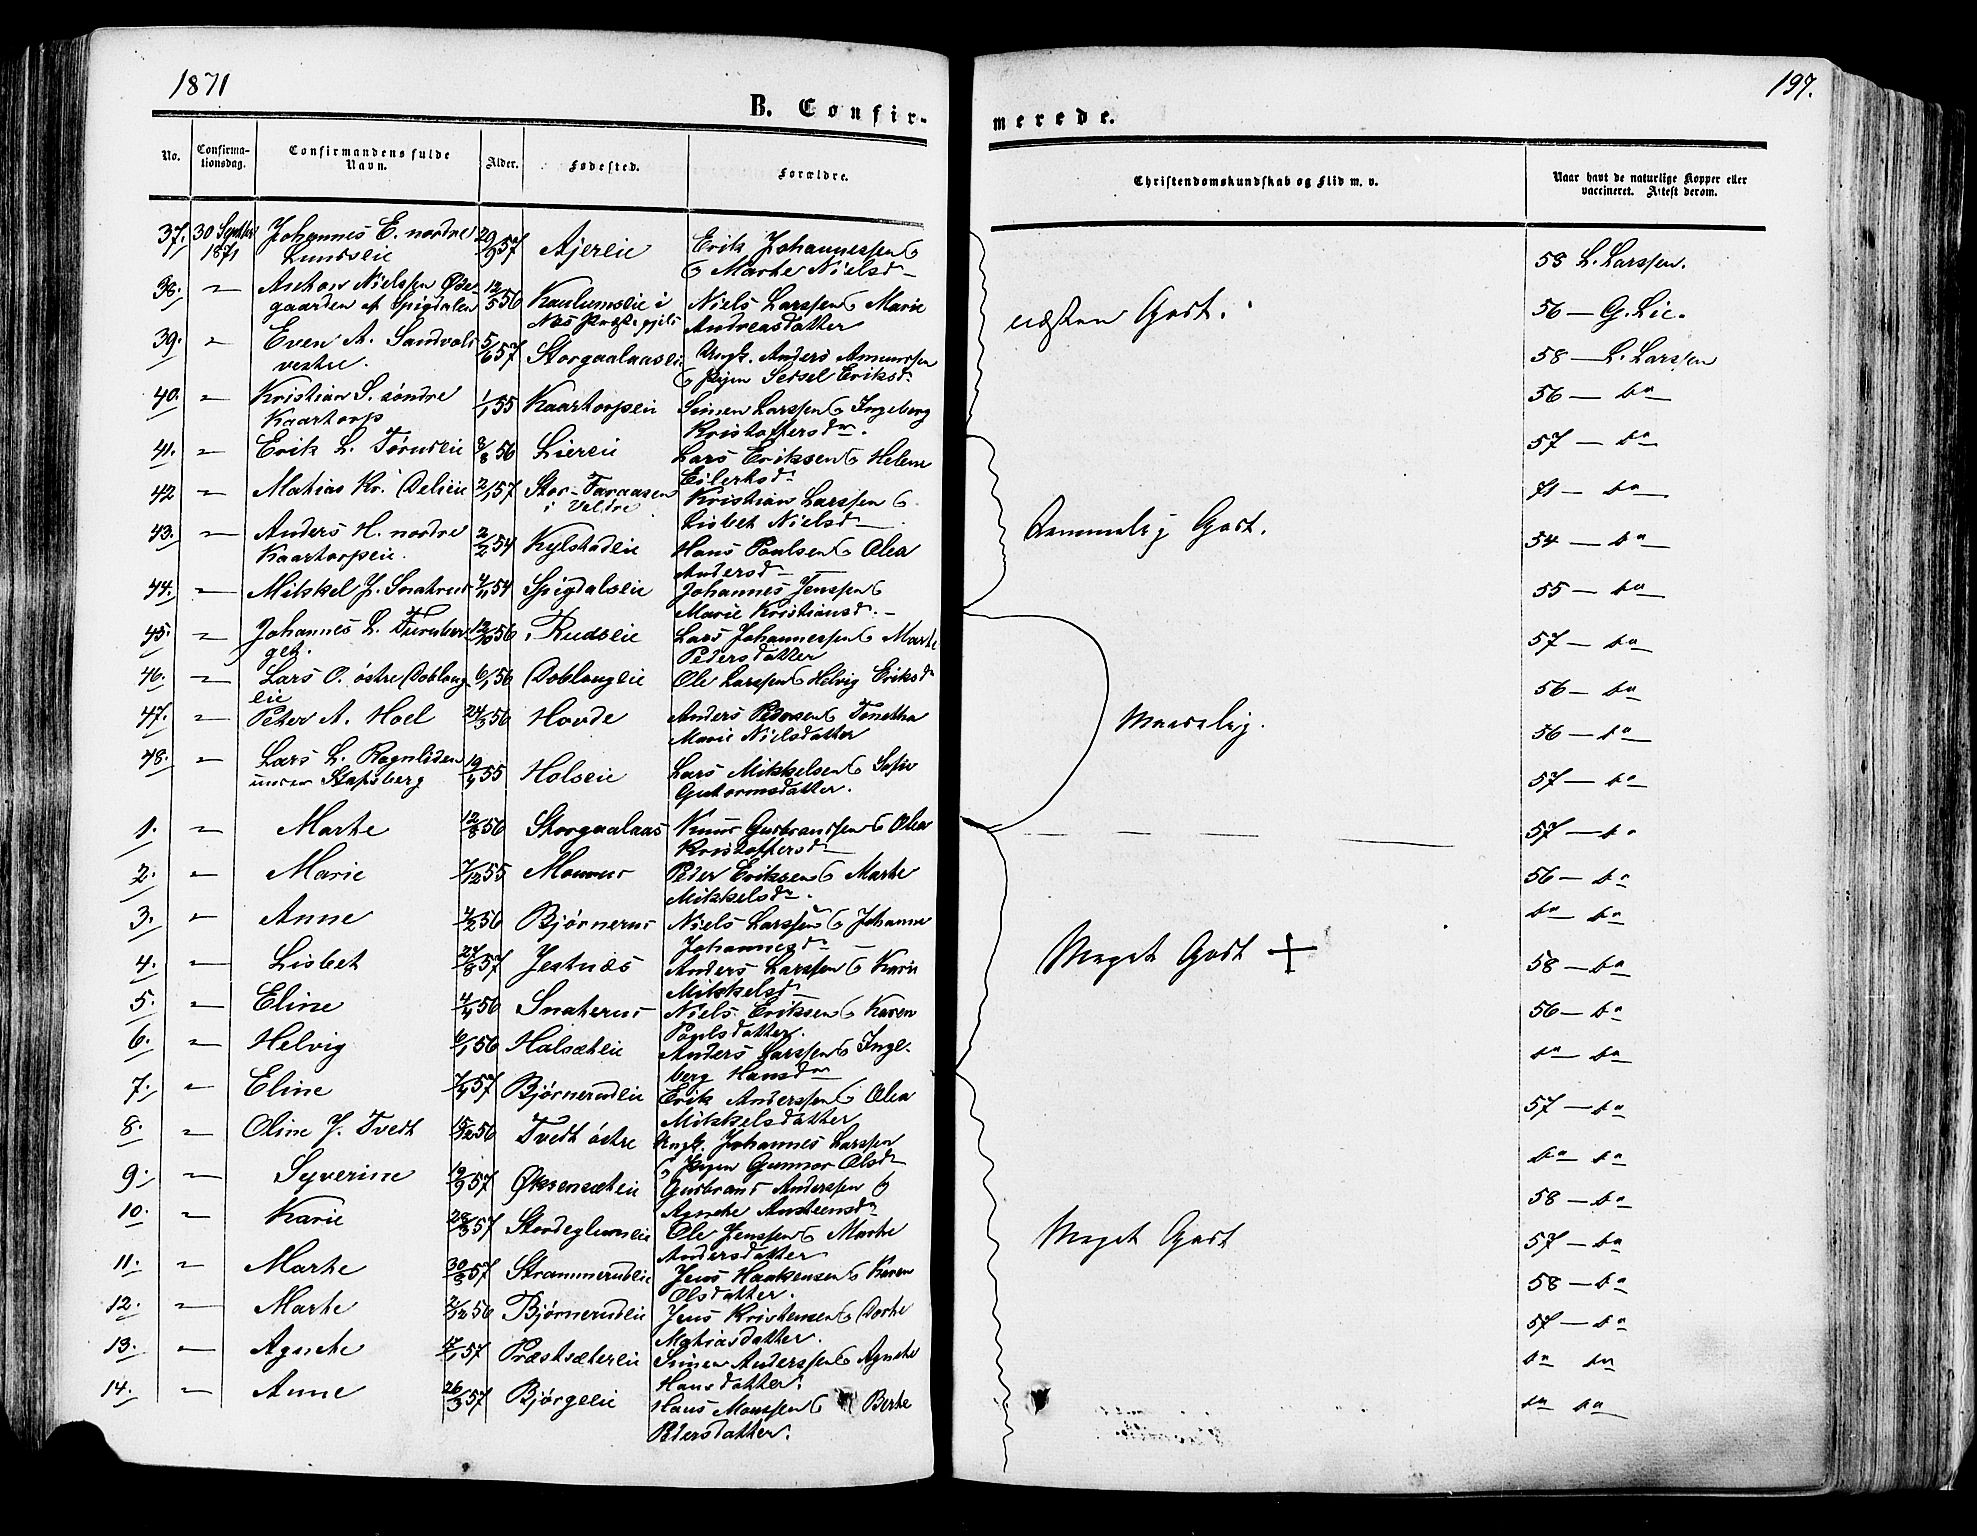 1871
197.
B. Confirmerede.
No. Confirmationsdag. Confirmandens fulde Navn. Alder. Fødested. Forældre. Christendomskundskab og Flid m. v. Naar havt de naturlige Kopper eller vaccineret. Attest derom.
37. 30 Septbr 1871 Johannes E. nordre Lundseie 20/9 57 Ajereie Erik Johannessen o o Marte Nielsd. 58 L. Larssen.
38. " Anton Nielssen Øde gaarden af Spigdalen 12/5 56 i Næs Niels Larssen o Marie Andreasdatter 56 — G. Lie.
39. " Even A. Sandvold vestre. 5/6 57 Storgaalaaseie Ungk. Anders Amundsen o Pigen Sedsel Eriksd. 58 — L. Larssen
næsten Godt.
40. " Kristian S. søndre Kaartorp 1/1 55 Kaartorpeie Simen Larssen o Ingeborg Kristoffersd. 56 — do
41. " Erik L. Tørudeie 3/8 56 Liereie Lars Eriksen o Helene Eilertsd. 57 — do
42 " Matias Kr. Delieie 2/1 57 Stor-Faraasen i Veldre Kristian Larssen o Lisbet Nielsd. 71 — do
43. " Anders H. nordre Kaartorpeie. 2/2 54 Kylstadeie Hans Paulsen o Olea Andersd. 54 — do
Temmelig Godt.
44. " Mikkel J. Snaterud 7/11 54 Spigdalseie Johannes Jenssen o Marie Kristiansd. 55 — do
45. " Johannes L. Furuberget. 12/10 56 Rudseie Lars Johannessen o Marte Pedersdatter 57 — do
46. " Lars O. østre Doblougeie 6/1 56 Doblougeie Ole Larssen o Helvig Eriksd 56 — do
47. " Peter A. Hoel 24/3 56 Hovde Anders Pedersen o Tonetha Marie Nielsdatter 56 — do
Maadelig.
48. " Lars L. Rognliden under Stafsberg 19/4 55 Holseie Lars Mikkelsen o Sofie Gutormsdatter. 57 — do
1. " Marte 12/8 56 Storgaalaas Knud Gudbrandssen o Olea Kristoffersd. 57 — do
2. " Marie 7/12 55 Peder Eriksen o Marte Mikkelsd. 56 — do
3. " Anne 4/2 56 Bjørnerud Niels Larssen o Johanne Johannesd. do — do
4. " Lisbet 27/8 57 Jestnæs Anders Larssen o Karie Mikkelsd. 58 — do
Meget Godt +
5. " Eline 4/4 56 Snaterud Niels Eriksen o Karen Paulsdatter. 56 — do
6. " Helvig 6/1 56 Halsæteie Anders Larssen o Ingeberg Hansd. do — do
7. " Eline 7/4 57 Bjørnerudeie Erik Anderssen o Olea Mikkelsdatter 57 — do
8. " Oline J. Tvedt 15/12 56 Tvedt østre Ungk. Johannes Larssen o Pigen Gunnor Olsd. do — do
9. " Syverine 19/9 57 Øksensæteie Gudbrand Anderssen o Agnete Austensd. 58 — do
10. " Karie 28/3 57 Ole Jenssen o Marte Andersdatter 57 — do
Meget Godt
11. " Marte 30/3 57 Strammerudeie Jens Haakensen o Karen Olsdatter. 58 — do
12. " Marte 2/12 56 Bjørnerudeie Jens Kristensen o Dorte Matiasdatter. 57 — do
13. " Agnete 17/1 57 Præstsætereie Simen Anderssen o Agnete Hansdatter. do do
14. " Anne 26/3 57 Bjørgeeie Hans Monssen o Berte Pedersdatter. do do